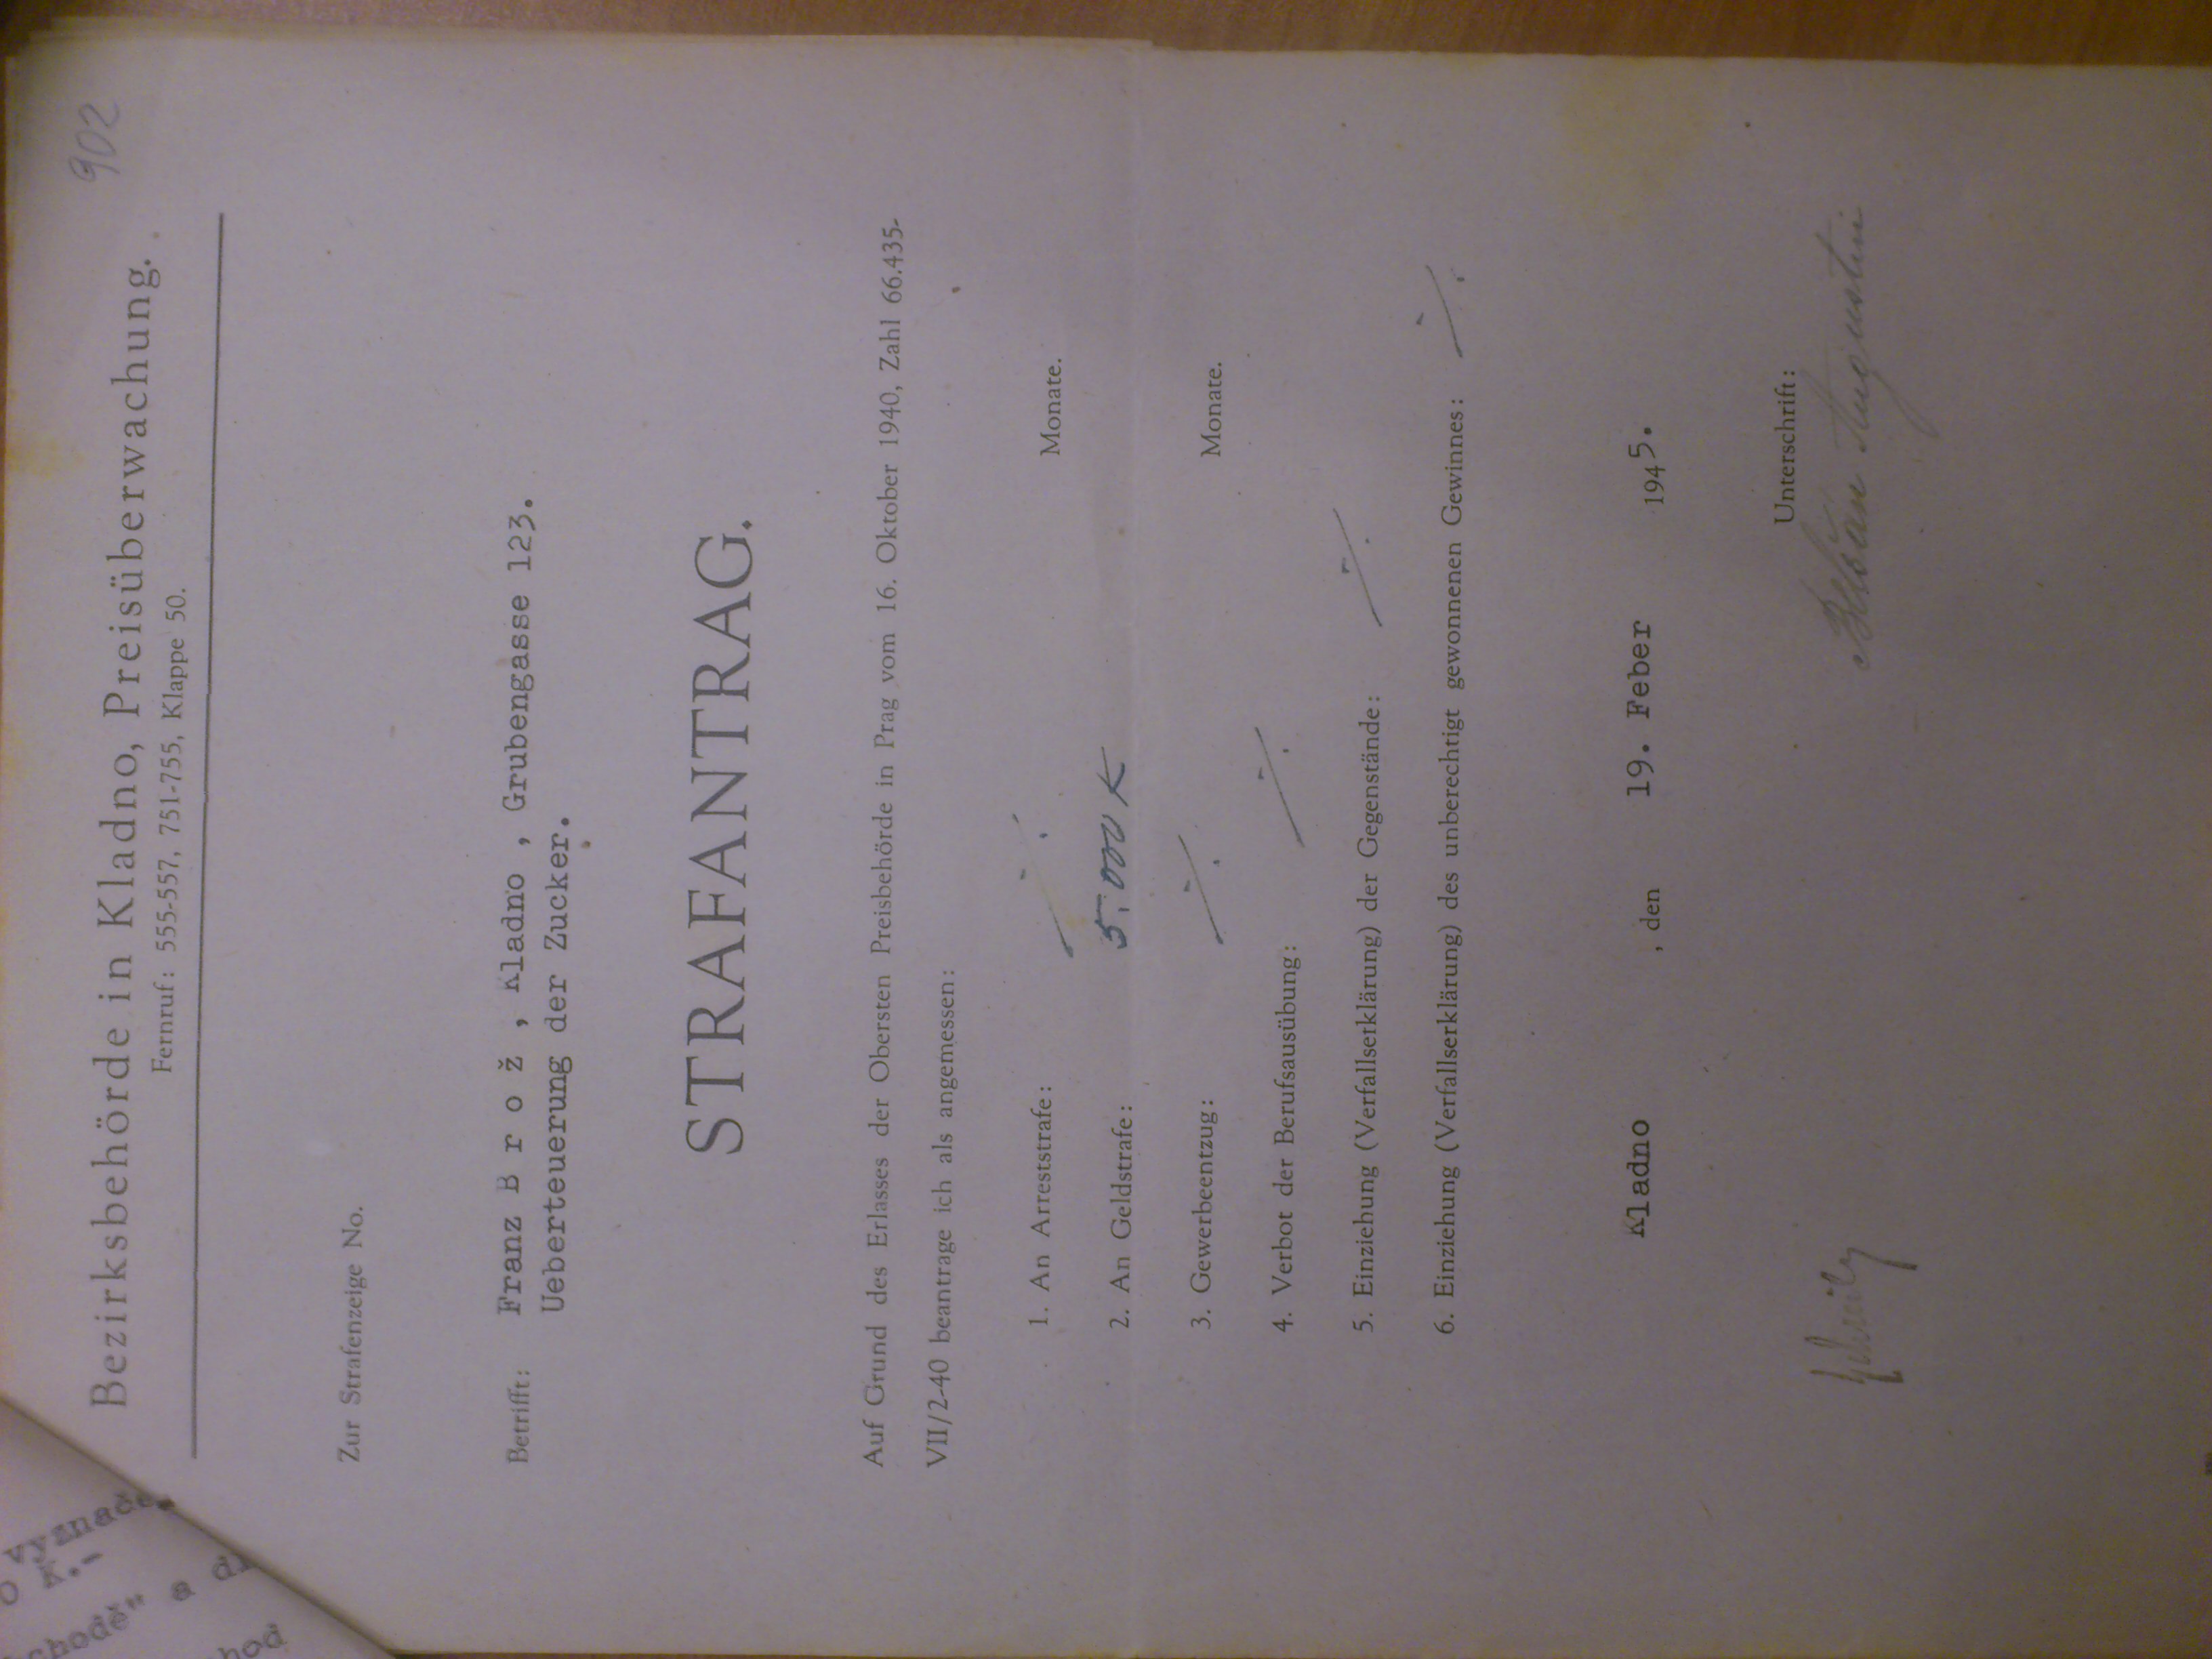 902
Bezirksbehörde in Kladno, Preisüberwachung.
Fernruf: 555-557, 751-755, Klappe 50.
Zur Strafenzeige No.
Betrifft: Franz B r o ž , Kladno , Grubengasse 123.
Ueberteuerung der Zucker.
STRAFANTRAG.
Auf Grund des Erlasses der Obersten Preisbehörde in Prag vom 16. Oktober 1940, Zahl 66.435-
VII/2-40 beantrage ich als angemessen:
1. An Arreststrafe: ./. Monate.
2. An Geldstrafe: 5.000 K
3. Gewerbeentzug: ./. Monate.
4. Verbot der Berufsausübung: ./.
5. Einziehung (Verfallserklärung) der Gegenstände: ./.
6. Einziehung (Verfallserklärung) des unberechtigt gewonnenen Gewinnes: ./.
Kladno , den 19. Feber 1945.
Unterschrift:
Augustin